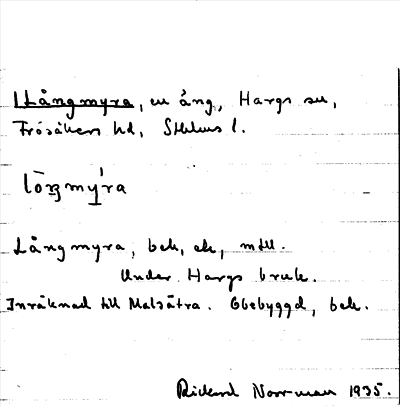 Långmyra, en äng, Hargs sn,
Frösåkers hd, Sthlms l.
lōŋmy̆ra
Långmyra, bek, ek, mtll.
Under Hargs bruk.
Inräknad till Malsätra. Obebyggd, bek.
Rickard Norrman 1935.